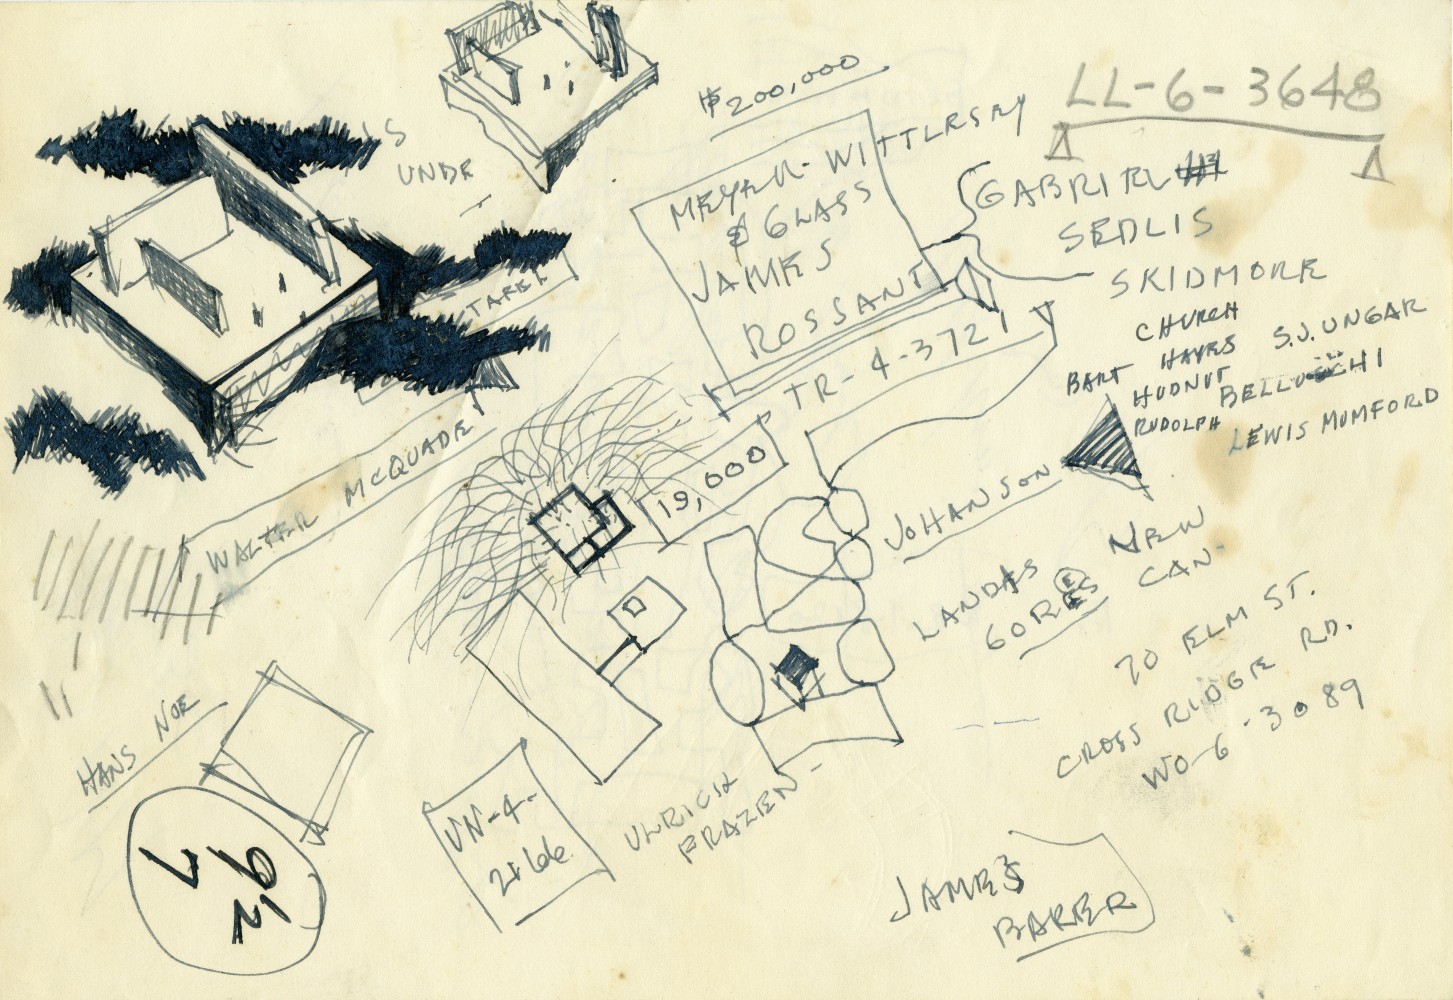 $200,000
LL-6-3648
UNDE
MEYER-WITTLRSEY
& GLASS
JAMES
ROSSANT
GABRIEL
SEDLIS
SKIDMORE
CHURCH
HAYES
S.J. UNGAR
BART
HUDNUT
BELLUSCHI
RUDOLPH
LEWIS MUMFORD
TR-4-3721
WALTER MCQUADE
19,000
JOHANSON
LANDAS
GORES
NEW
CAN-
70 ELM ST.
CROSS RIDGE RD.
WO-6-3089
HANS NOE
ULRICH
FRAZEN-
JAMES
BARER
9 1/2
7